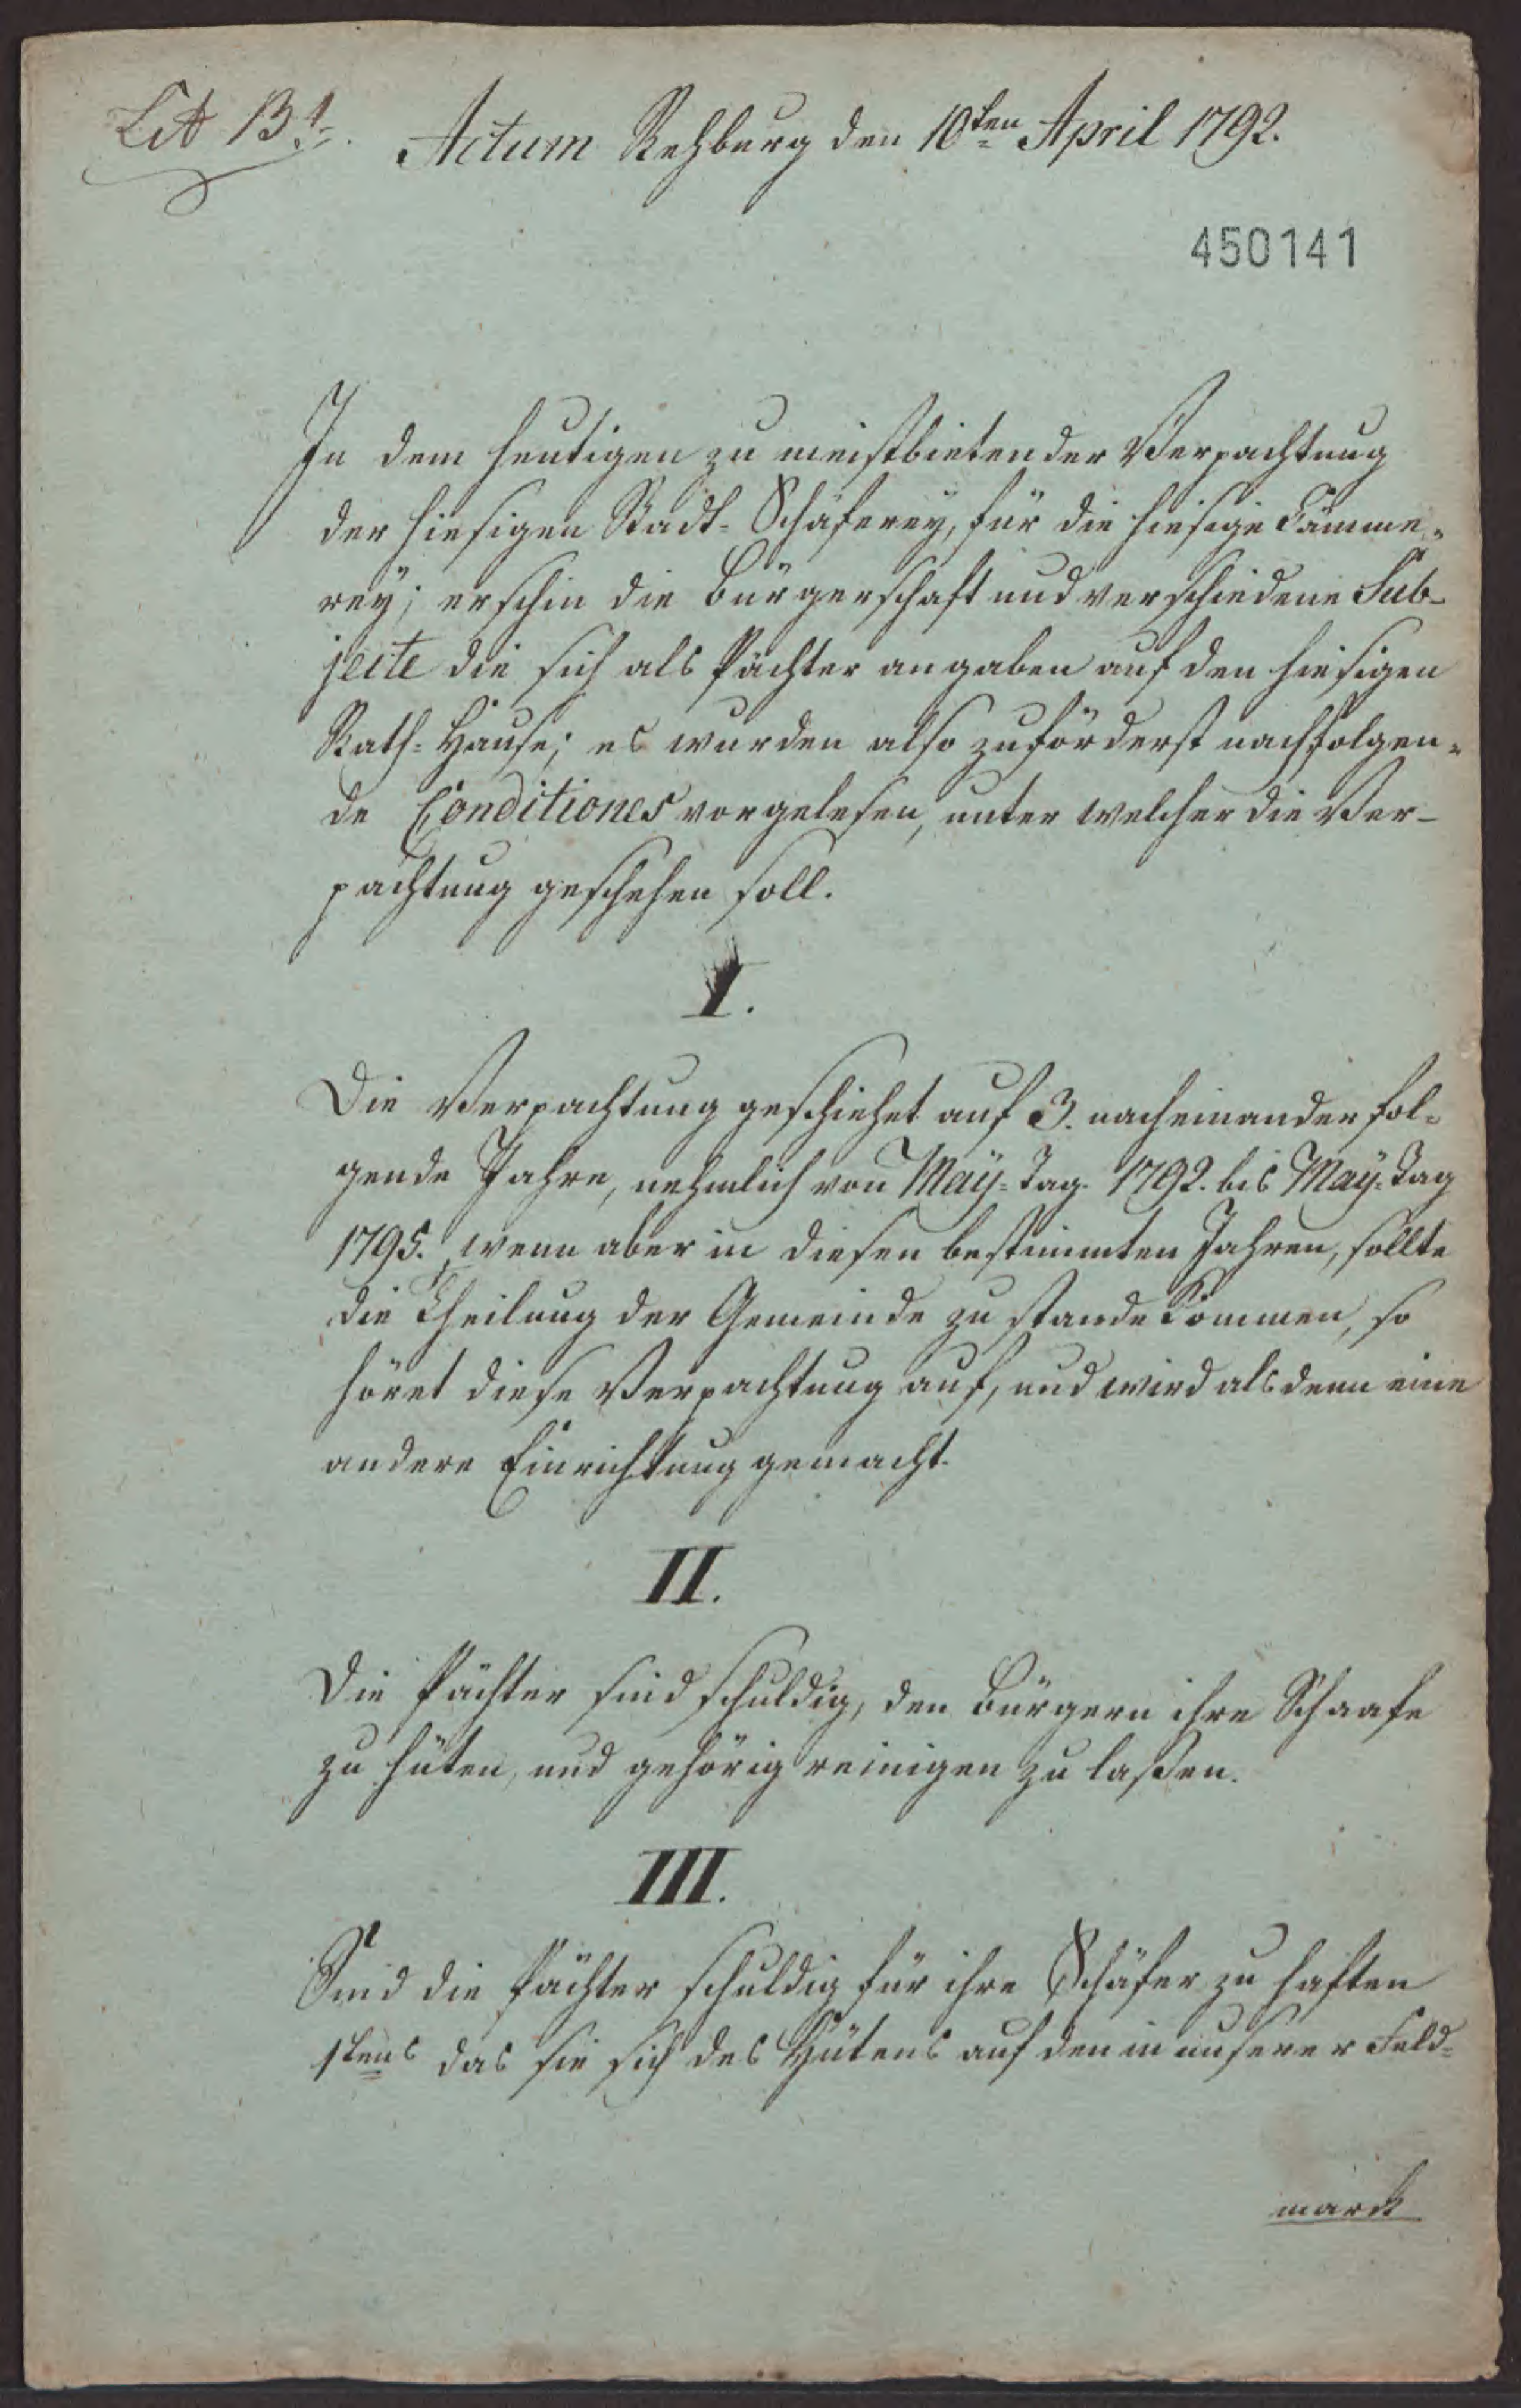 Lit B 1.
Actum Rehburg den 10ten April 1792.
450141
In dem heutigen zu meistbietender Verpachtung
der hiesigen Stadt-Schäferey, für die hiesige Cämme-
rey; erschin die Bürgerschaft und verschiedene Sub-
jecte die sich als Pächter angaben auf den hiesigen
Rath-Hause; es wurden also zuförderst nachfolgen-
de Conditiones vorgelesen, unter welcher die Ver-
pachtung geschehen soll.
I.
Die Verpachtung geschiehet auf 3. nacheinander fol-
gende Jahre, nehmlich von Maÿ-Tag 1792. bis Maÿ-Tag
1795. wenn aber in diesen bestimmten Jahren, sollte
die Theilung der Gemeinde zu stande kommen, so
höret diese Verpachtung auf, und wird alsdenn eine
andere Einrichtung gemacht.
II.
Die Pächter sind schuldig, den Bürgern ihre Schaafe
zu hüten, und gehörig reinigen zu laßen.
III.
Sind die Pächter schuldig für ihre Schäfer zu haften
1tens das sie sich des Hütens auf den in unserer Feld-
mark